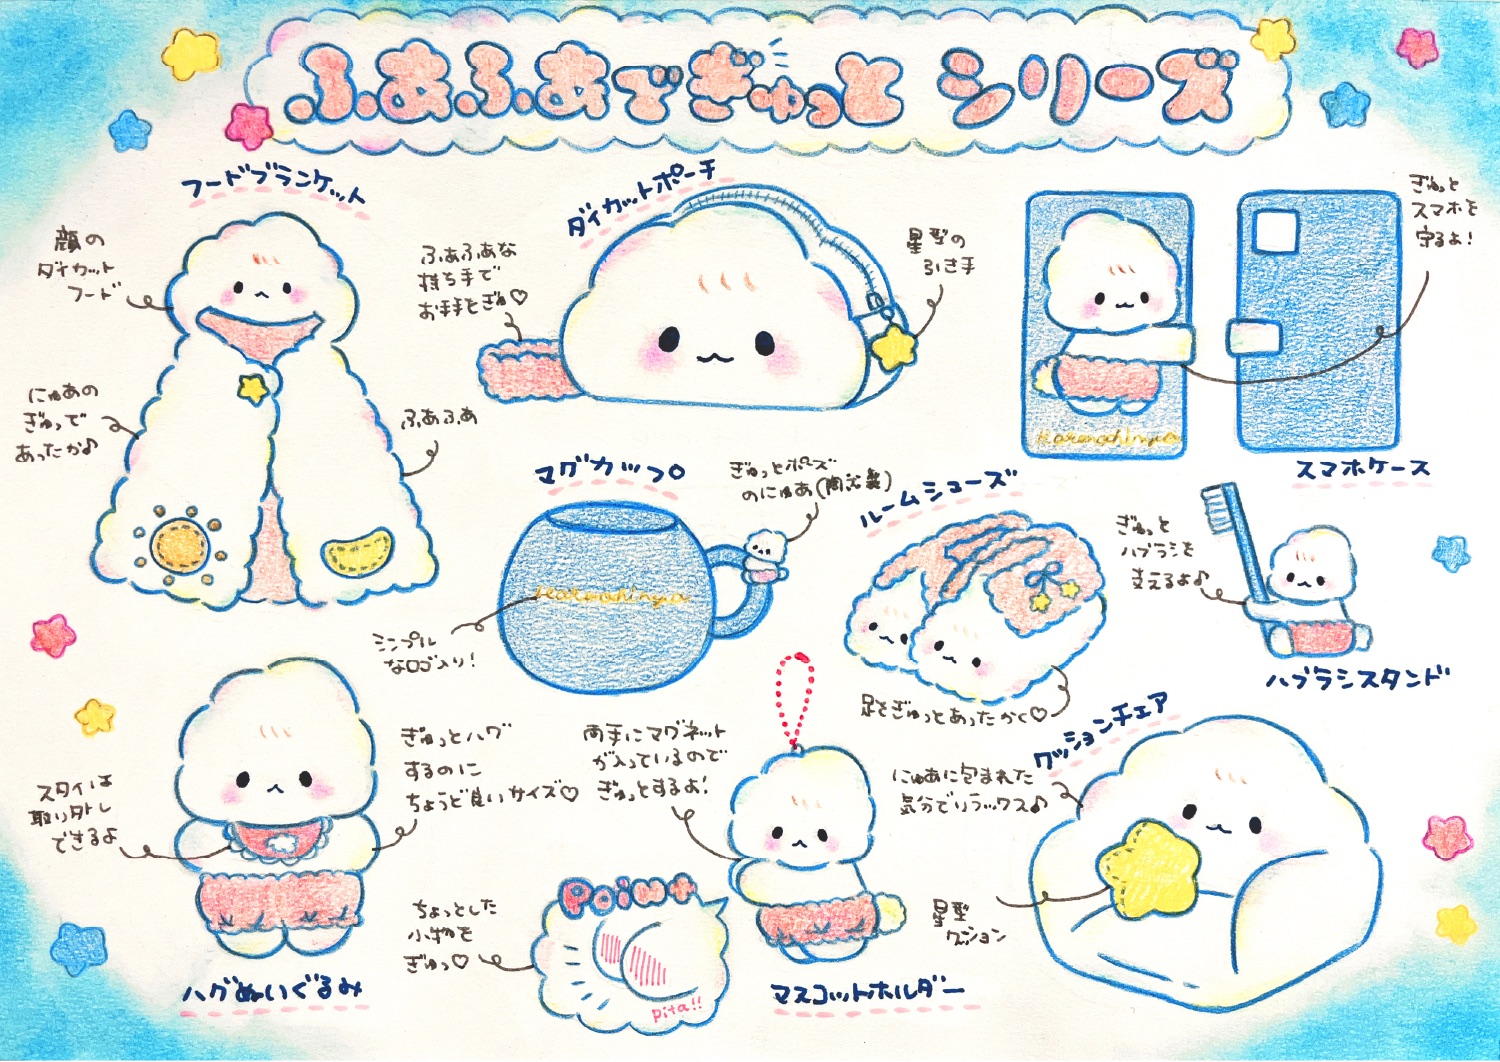 ふあふあでぎゅっと シリーズ
フードブランケット
顔の
ダイカット
フード
にゅあの
ぎゅっで
あったか♪
ふあふあ
ダイカットポーチ
ふあふあな
持ち手で
お手手とぎゅ♡
星型の
引き手
ぎゅっと
スマホを
守るよ!
Karonachinyua
スマホケース
マグカップ
ぎゅっとポーズ
のにゅあ(陶器製)
Karonachinyua
シンプル
なロゴ入り!
ルームシューズ
足をぎゅっとあったかく♡
ぎゅっと
ハブラシを
支えるよ♪
ハブラシスタンド
スタイは
取り外し
できるよ
ぎゅっとハグ
するのに
ちょうど良いサイズ♡
ハグぬいぐるみ
両手にマグネット
が入っているので
ぎゅっとするよ!
ちょっとした
小物を
ぎゅっ♡
Point
pita!!
マスコットホルダー
クッションチェア
にゅあに包まれた
気分でリラックス♪
星型
クッション